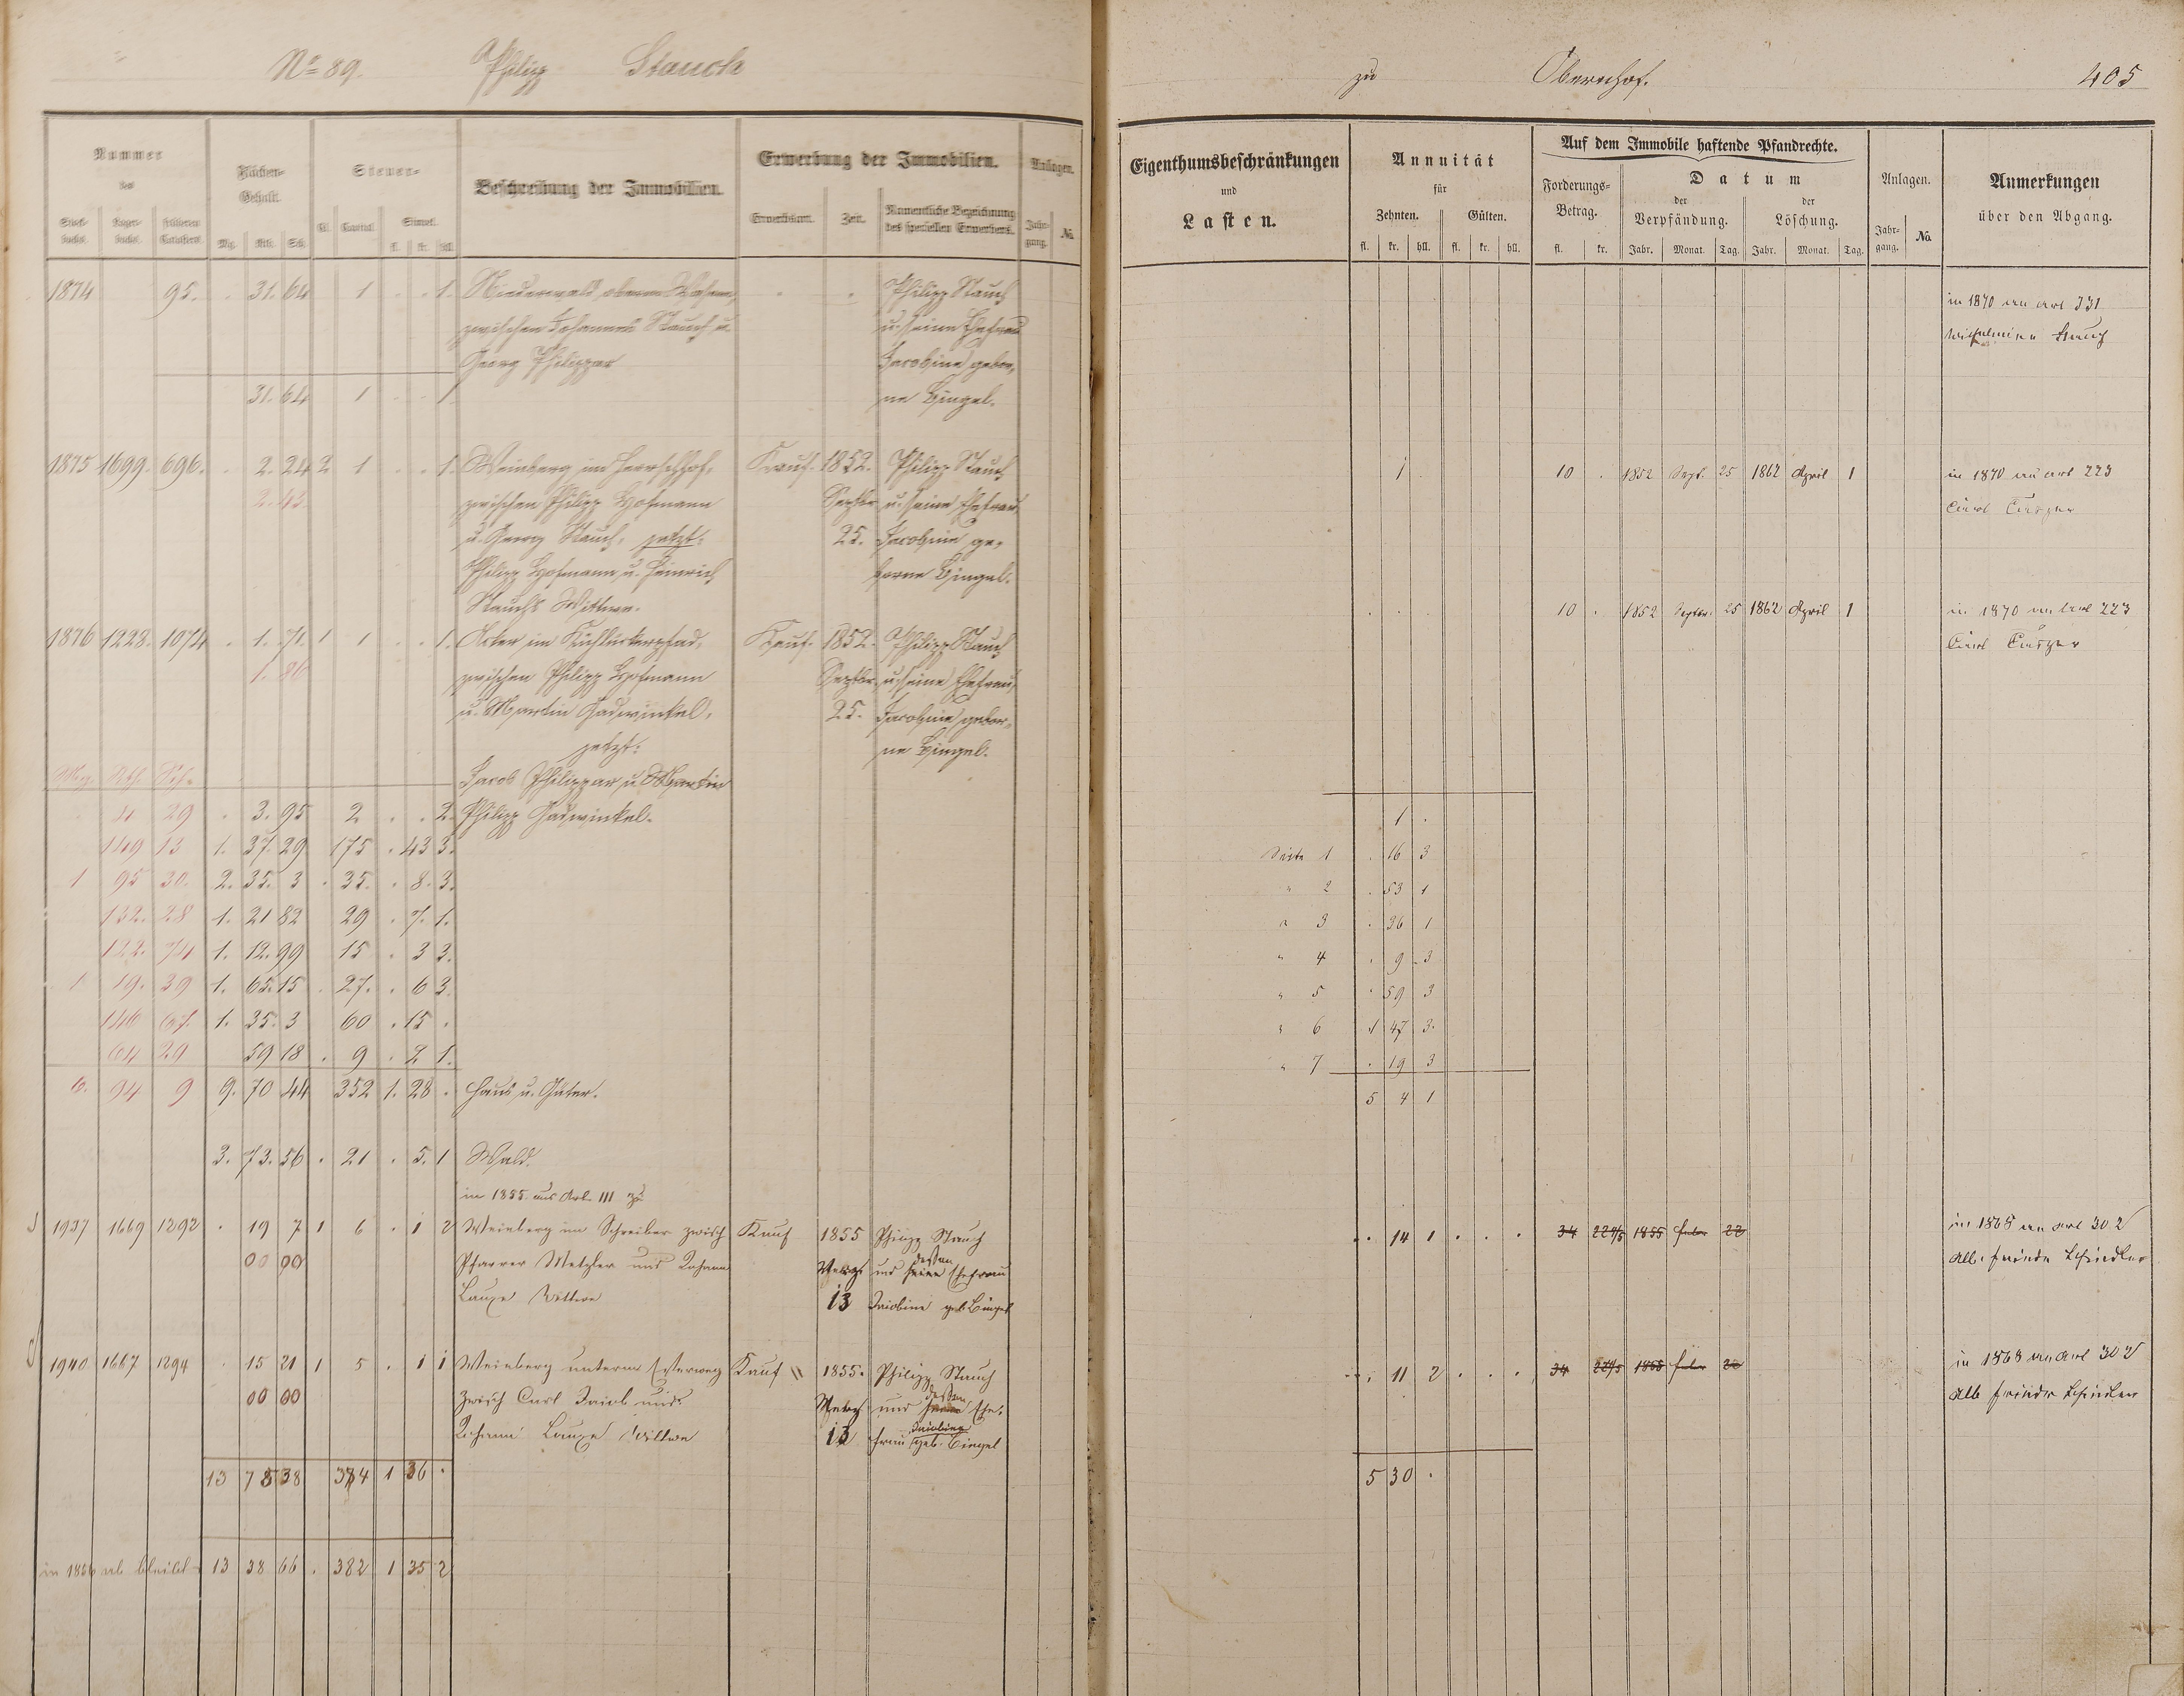 No 89. Philipp Stauch
zu Obernhof. 405
Nummer des
Stockbuchs. Lagerbuchs. früheren Catasters.
Flächen-Gehalt.
Mg. Rth. Sch.
Steuer-
Cl. Capital. Simpel.
fl. kr. hll.
Beschreibung der Immobilien.
Erwerbung der Immobilien.
Erwerbsart. Zeit. Namentliche Bezeichnung des speciellen Erwerbers.
Anlagen.
Jahrgang. No.
Eigenthumsbeschränkungen
und
Lasten.
Annuität
für
Zehnten. Gülten.
fl. kr. hll. fl. kr. hll.
Auf dem Immobile haftende Pfandrechte.
Forderungs-Betrag.
fl. kr.
Datum
der Verpfändung. der Löschung.
Jahr. Monat. Tag. Jahr. Monat. Tag.
Anlagen.
Jahr-gang. No.
Anmerkungen
über den Abgang.
1874 95. . 31. 64 1 . . 1. Niederwald oberm
zwischen Johannes Stauch u.
Georg Philippar
Philipp Stauch
u. seine Ehefrau
Jacobine gebor-
ne Bingel.
in 1870 an Art 331
Wilhelmine Stauch
31. 64 1 . . 1.
1875 1699. 696. . 2. 24 2 1 . . 1. Weinberg im
2. 43
zwischen Philipp Hofmann
u. Georg Stauch, jetzt:
Philipp Hofmann u. Heinrich
Stauchs Wittwe.
Kauf. 1852. Septbr 25.
Philipp Stauch
u. seine Ehefrau
Jacobine ge-
borne Bingel.
1 . 10 . 1852 Sept. 25 1862 April 1
in 1870 an Art 223
Carl
1876 1228. 1074 . 1. 71. 1 1 . . 1. Acker im
zwischen Philipp Hofmann
u. Martin
jetzt:
Jacob Philippar u. Martin
Philipp
Kauf. 1852. Septbr 25.
Philipp Stauch
u. seine Ehefrau
Jacobine gebor-
ne Bingel.
10 . 1852 Septbr. 25 1862 April 1
in 1870 an Art 223
Carl
Mrg. Rth. Sch.
4 29 . 3. 95 2 . . 2.
149 13 1. 37. 29 175 . 43 3.
1 95 30. 2. 35. 3 . 35. . 8. 3.
132. 28 1. 21 82 29 . 7. 1.
122. 74 1. 12. 99 15 . 3 3.
1 19. 39 1. 65. 15 . 27. . 6 3.
146 67. 1. 35. 3 60 . 15 .
64 29 59 18 . 9 . 2 1.
6. 94 9 9. 70 44 352 1. 28 . Haus u. Güter.
3. 73. 56 . 21 . 5. 1 Wald.
1 .
Seite 1 . 16 3
" 2 . 53 1
" 3 . 36 1
" 4 . 9 3
" 5 . 59 3
" 6 1 47 3.
" 7 . 19 3
5 4 1
in 1855 aus Art. 111 zu
1937 1669 1292 . 19 7 1 6 . 1 2 Weinberg im Schreiber zwisch
00 00
Pfarrer Metzler und Johann
Wittwe
Kauf 1855 13
Philipp Stauch
und seine dessen Ehefrau
Jacobine geb Bingel
. 14 1 . . . 34 1855 22
in 1868 an Art 302
1940 1667 1294 . 15 21 1 5 . 1 1 Weinberg unterm
00 00
zwisch Carl Jacob und
Johann Wittwe
Kauf " 1855. 13
Philipp Stauch
und seine dessen Ehe-
frau Jacobine geb. Bingel
. 11 2 . . . 34 1855
in 1868 an Art 302
13 78 38 374 1 36 .
5 30 .
in 1856 ab bleibt 13 38 66 . 382 1 35 2